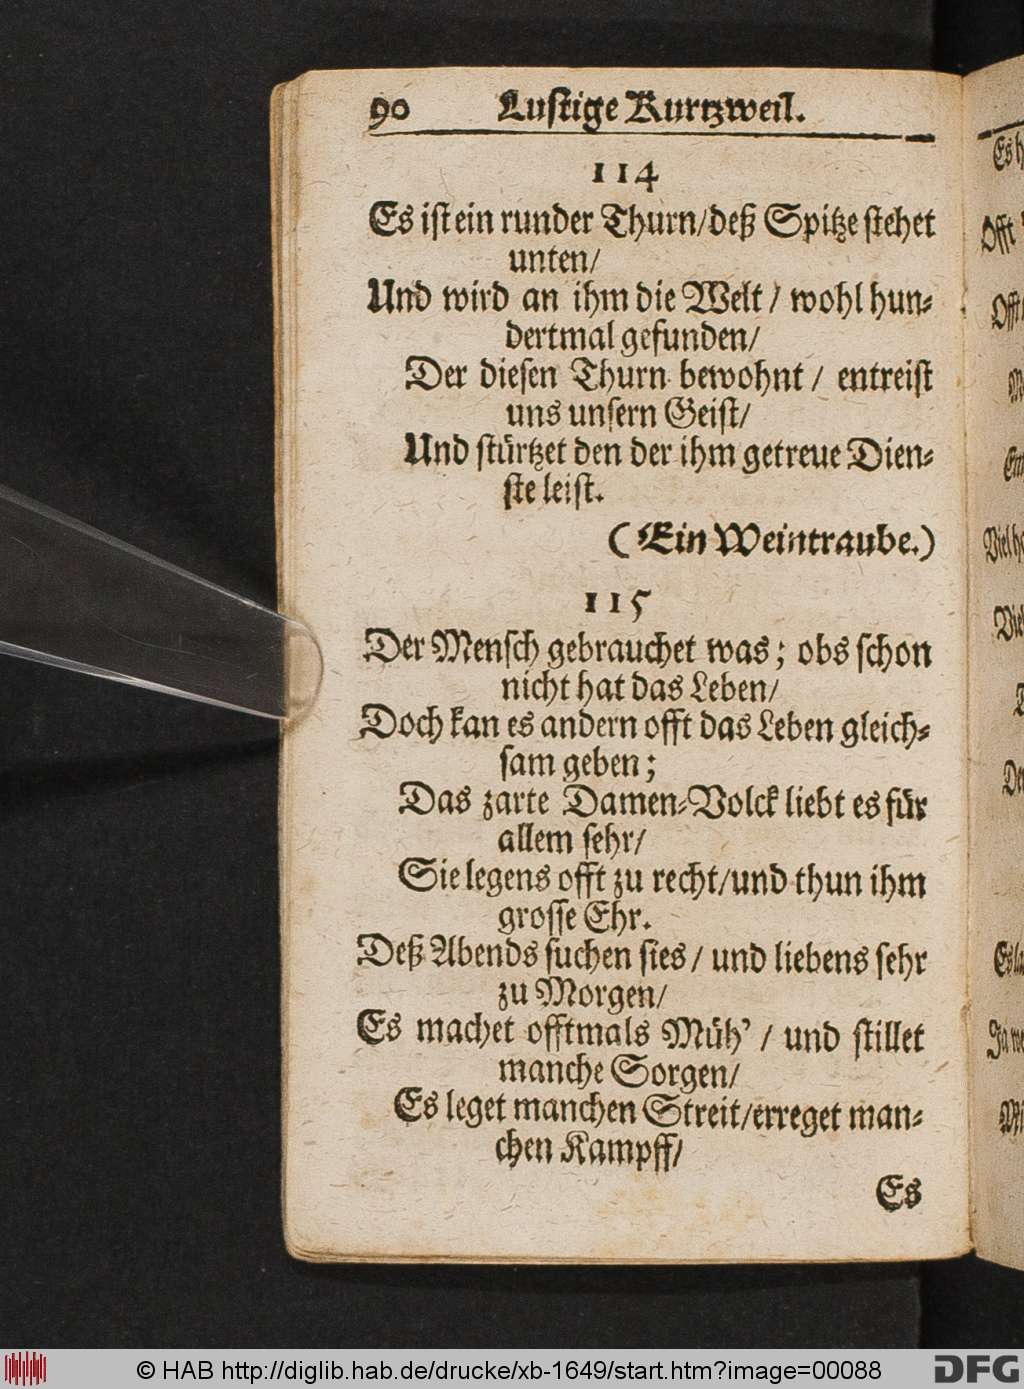 90 Lustige Kurtzweil.
114
Es ist ein runder Thurn/deß Spitze stehet
unten/
Und wird an ihm die Welt / wohl hun-
dertmal gefunden/
Der diesen Thurn bewohnt / entreist
uns unsern Geist/
Und stürtzet den der ihm getreue Dien-
ste leist.
(Ein Weintraube.)
115
Der Mensch gebrauchet was; obs schon
nicht hat das Leben/
Doch kan es andern offt das Leben gleich-
sam geben;
Das zarte Damen-Volck liebt es für
allem sehr/
Sie legens offt zu recht/und thun ihm
grosse Ehr.
Deß Abends suchen sies / und liebens sehr
zu Morgen/
Es machet offtmals Müh' / und stillet
manche Sorgen/
Es leget manchen Streit/erreget man-
chen Kampff/
Es
Offt
© HAB http://diglib.hab.de/drucke/xb-1649/start.htm?image=00088
DFG